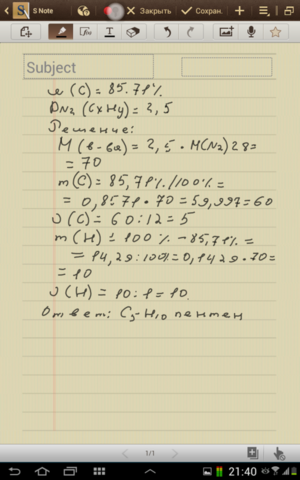 S Note
Закрыть
Сохран.
Subject
ω(C) = 85.71%
DN₂ (CxHy) = 2,5
Решение:
M (в-ва) = 2,5 · M(N₂) 28 =
= 70
m(C) = 85,71%/100% =
= 0,8571 · 70 = 59,997 = 60
υ(C) = 60:12 = 5
m(H) = 100% - 85,71% =
= 14,29:100% = 0,1429 · 70 =
= 10
υ(H) = 10:1 = 10.
Ответ: C₅-H₁₀ пентен
1/1
21:40